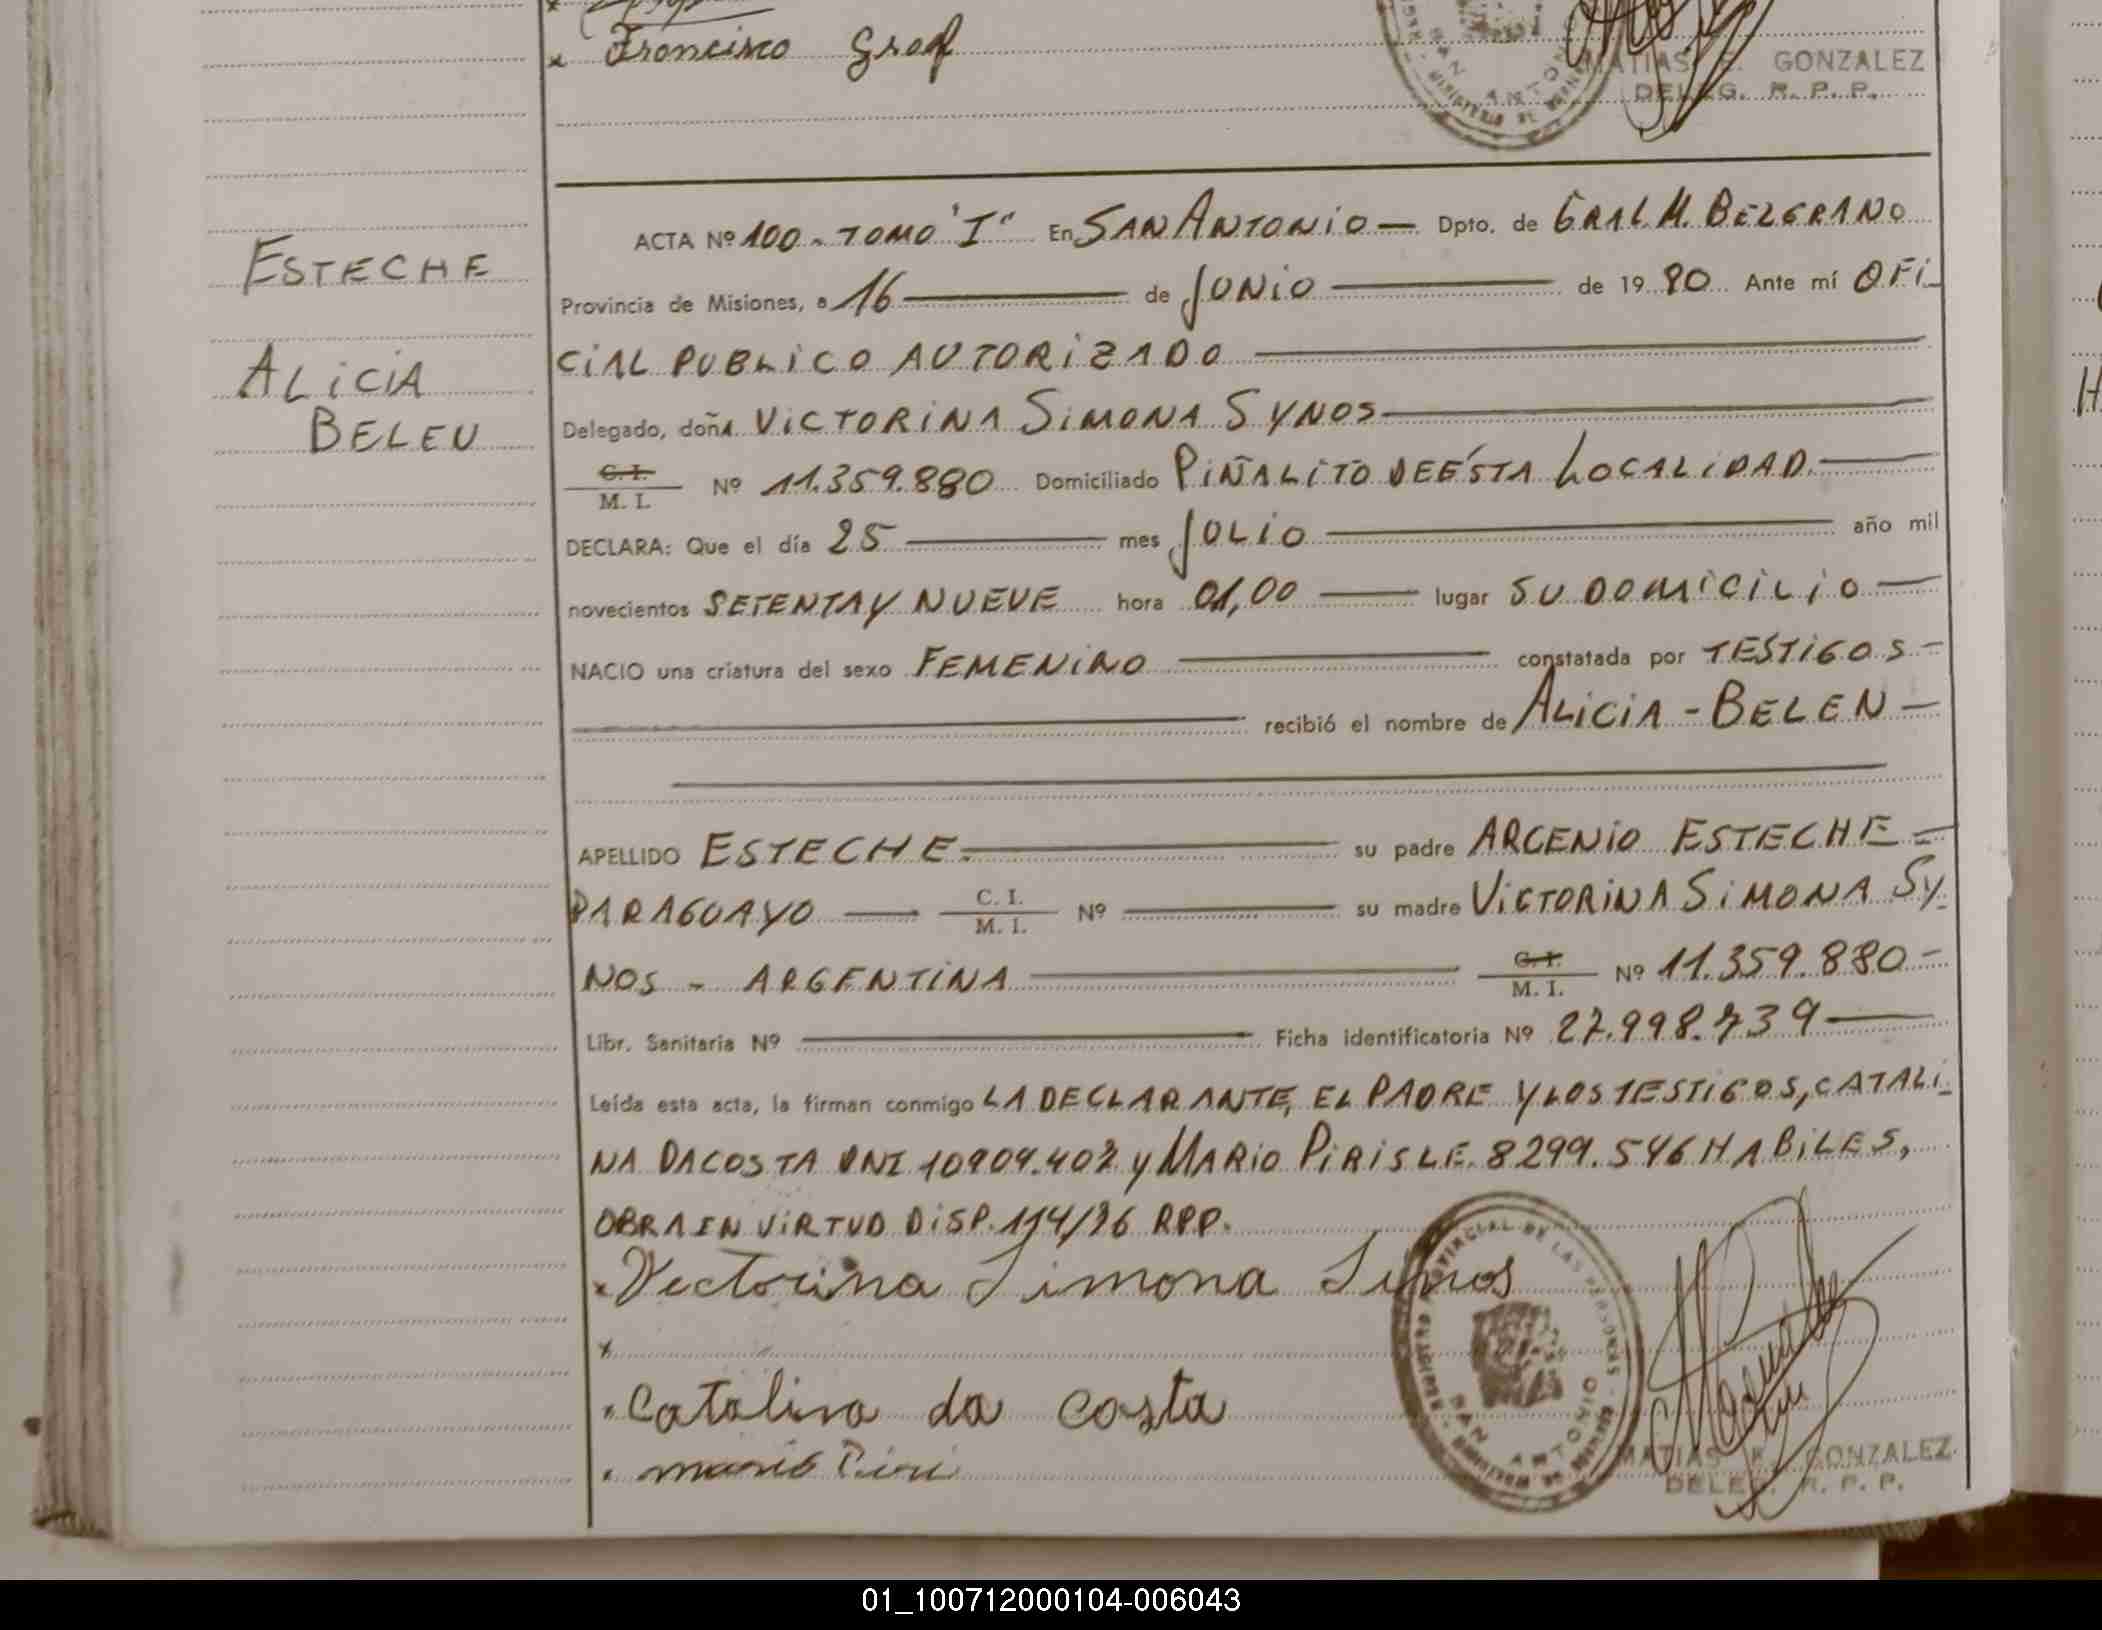 Francisco Graf
MATIAS E. GONZALEZ
DELEG. R. P. P.
ESTECHE
ALICIA
BELEU
ACTA Nº 100 - TOMO "I" En SAN ANTONIO — Dpto. de GRAL. M. BELGRANO
Provincia de Misiones, a 16 de JUNIO de 1980 Ante mí OFI-
CIAL PUBLICO AUTORIZADO
Delegado, doña VICTORINA SIMONA SYNOS
C. I.
M. I. Nº 11.359.880 Domiciliado PIÑALITO DE ÉSTA LOCALIDAD.
DECLARA: Que el día 25 mes JULIO año mil
novecientos SETENTA Y NUEVE hora 01,00 lugar SU DOMICILIO
NACIO una criatura del sexo FEMENINO constatada por TESTIGOS -
recibió el nombre de ALICIA - BELEN -
APELLIDO ESTECHE. su padre ARCENIO ESTECHE -
PARAGUAYO C. I. / M. I. Nº su madre VICTORINA SIMONA SY-
NOS - ARGENTINA C. I. / M. I. Nº 11.359.880 -
Libr. Sanitaria Nº Ficha identificatoria Nº 27.998.739
Leída esta acta, la firman conmigo LA DECLARANTE, EL PADRE Y LOS TESTIGOS, CATALI-
NA DACOSTA DNI 10904.407 y MARIO PIRIS LE. 8299.546 HABILES,
OBRA EN VIRTUD DISP. 114/76 RPP.
x Victorina Simona Sinos
x
x Catalina da costa
x mario Piri
REGISTRO PROVINCIAL DE LAS PERSONAS
SAN ANTONIO
MATIAS E. GONZALEZ
DELEG. R. P. P.
01_100712000104-006043